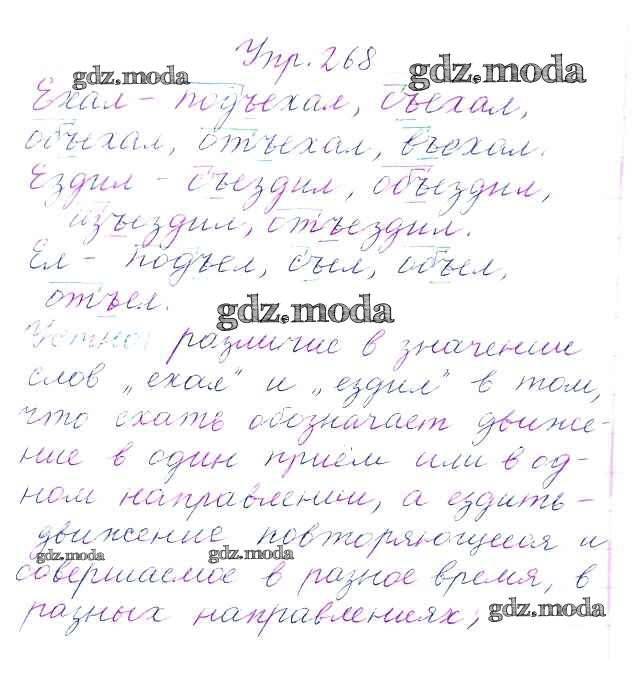 Упр. 268
gdz.moda
gdz.moda
Ехал – подъехал, съехал,
объехал, отъехал, въехал.
Ездил – съездил, объездил,
изъездил, отъездил.
Ел – подъел, съел, объел,
отъел.
gdz.moda
Устно: различие в значении
слов „ехал" и „ездил" в том,
что ехать обозначает движе-
ние в один приём или в од-
ном направлении, а ездить –
движение повторяющееся и
gdz.moda
gdz.moda
совершаемое в разное время, в
разных направлениях;
gdz.moda